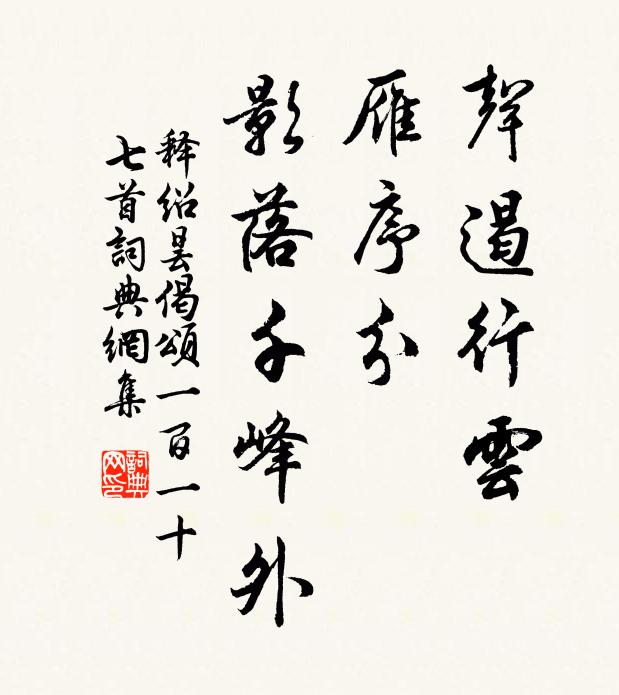 聲遏行雲
雁序分
影落千峰外
释紹曇偈頌一百一十
七首詞典網集
詞典
网印